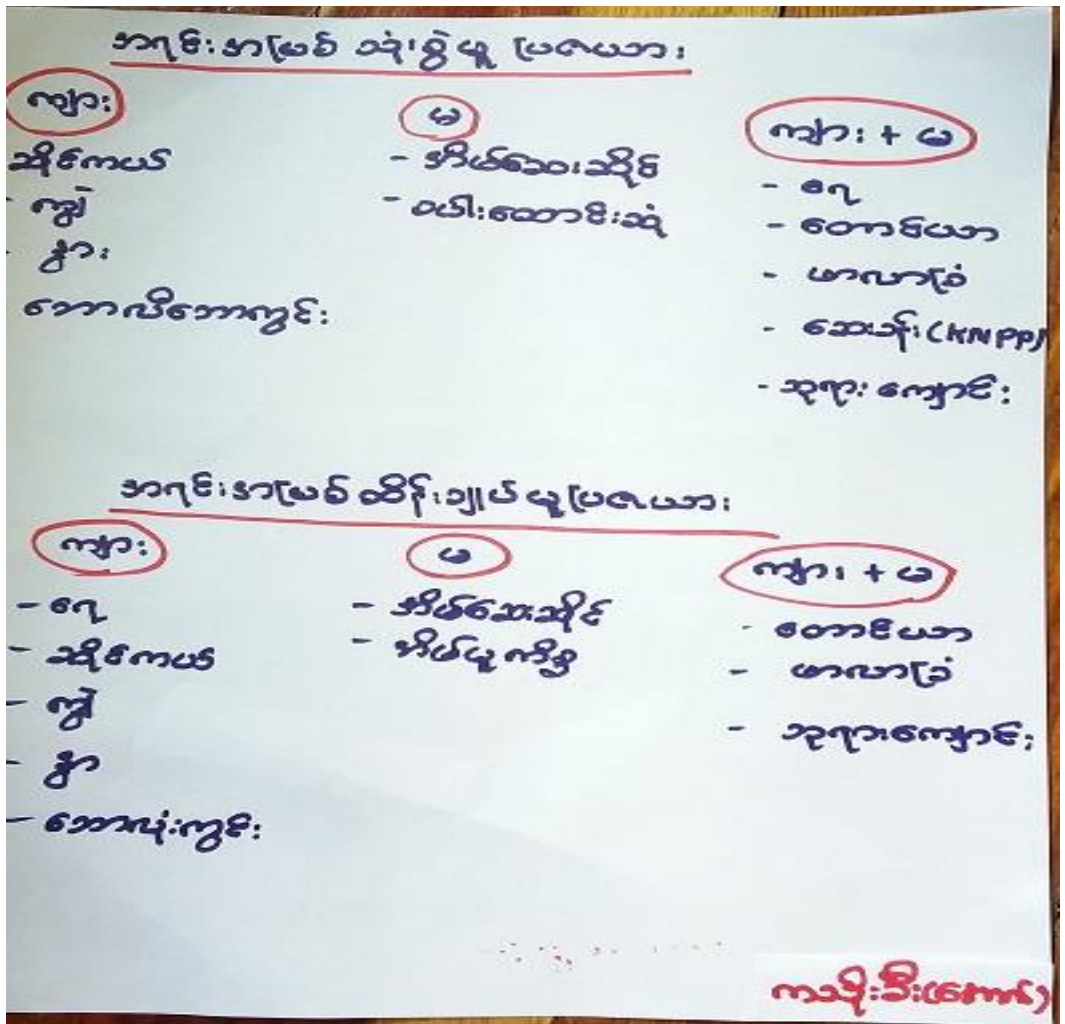 အရင်းအမြစ် သုံးစွဲသူ ပြဇယား
ကျား
ဆိုင်ကယ်
- ကျွဲ
- နွား
ဘောလီဘောကွင်း
မ
- အိမ်ဆေးဆိုင်
- ဝါးထောင်းဆုံ
ကျား + မ
- ရေ
- တောင်ယာ
- ဖာလာခြံ
- ဆေးခန်း (KNPP)
- ဘုရားကျောင်း
အရင်းအမြစ် ထိန်းချုပ်သူ ပြဇယား
ကျား
- ရေ
- ဆိုင်ကယ်
- ကျွဲ
- နွာ
- ဘောလုံးကွင်း
မ
- အိမ်ဆေးဆိုင်
- အိမ်မူကိစ္စ
ကျား + မ
- တောင်ယာ
- ဖာလာခြံ
- ဘုရားကျောင်း